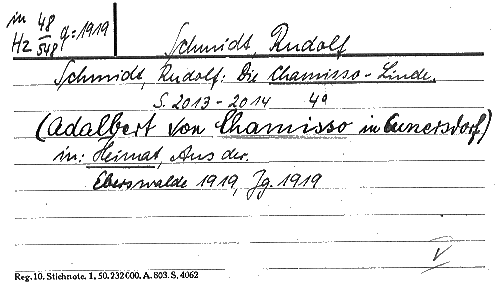 in 48/548 q: 1919
Hz
Schmidt, Rudolf
Schmidt, Rudolf: Die Chamisso-Linde.
S. 2013-2014 4a
(Adalbert von Chamisso in Cunersdorf)
in: Heimat, Aus der.
Eberswalde 1919, Jg. 1919
V
Reg. 10. Stichnote. 1, 50. 232000. A. 803. S. 4062